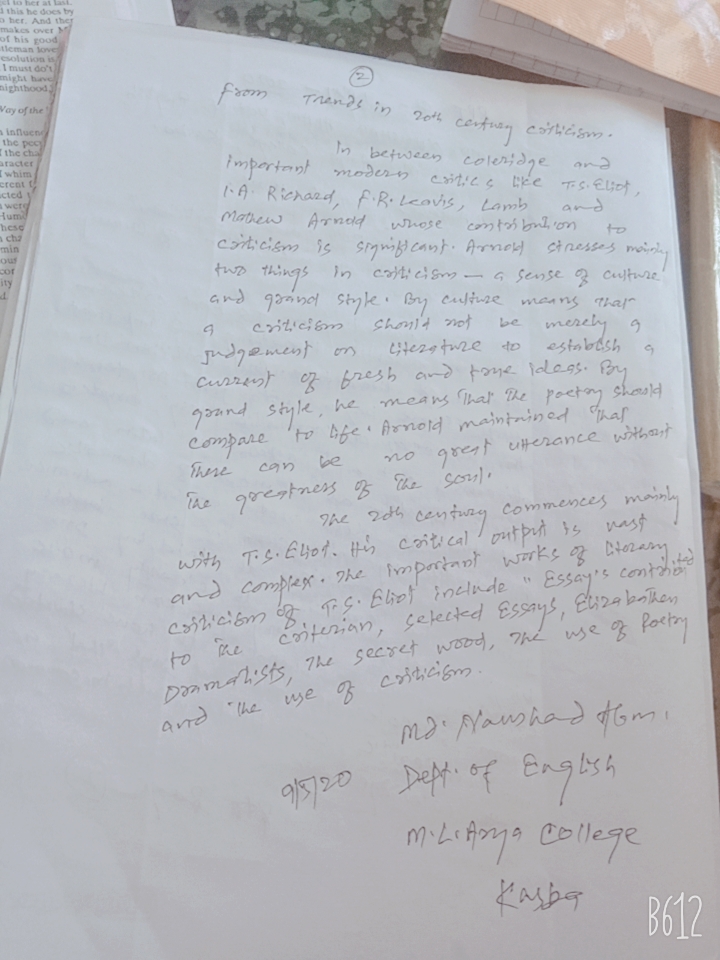 2
from Trends in 20th century criticism.
In between coleridge and
important modern critics like T.S. Eliot,
I.A. Richard, F.R. Leavis, Lamb and
Mathew Arnold whose contribution to
criticism is significant. Arnold stresses mainly
two things in criticism — a sense of culture
and grand style. By culture means that
a criticism should not be merely a
judgement on literature to establish a
current of fresh and true ideas. By
grand style, he means that the poetry should
compare to life. Arnold maintained that
There can be no great utterance without
the greatness of the soul.
The 20th century commences mainly
with T.S. Eliot. His critical output is vast
and complex. The important works of literary
criticism of T.S. Eliot include "Essay's contributed
to the criterian, selected Essays, Elizabethen
Dramatists, The secret wood, The use of Poetry
and the use of criticism.
Md. Naushad
9/5/20 Dept. of English
M.L. Arya College
Kasba
B612